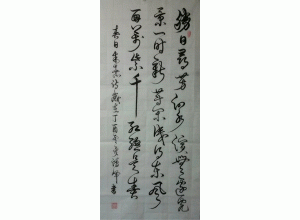 勝日尋芳泗水濱無邊光
景一時新等閑識得東風
面萬紫千紅總是春
春日朱熹詩歲在丁酉書